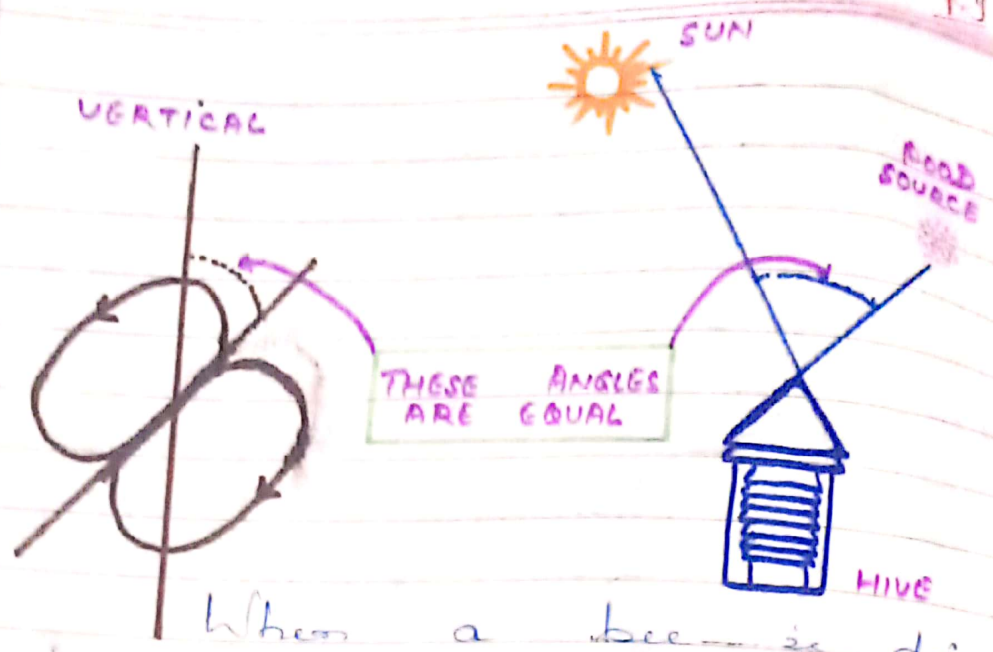 SUN
VERTICAL
FOOD
SOURCE
THESE ANGLES
ARE EQUAL
HIVE
When a bee is